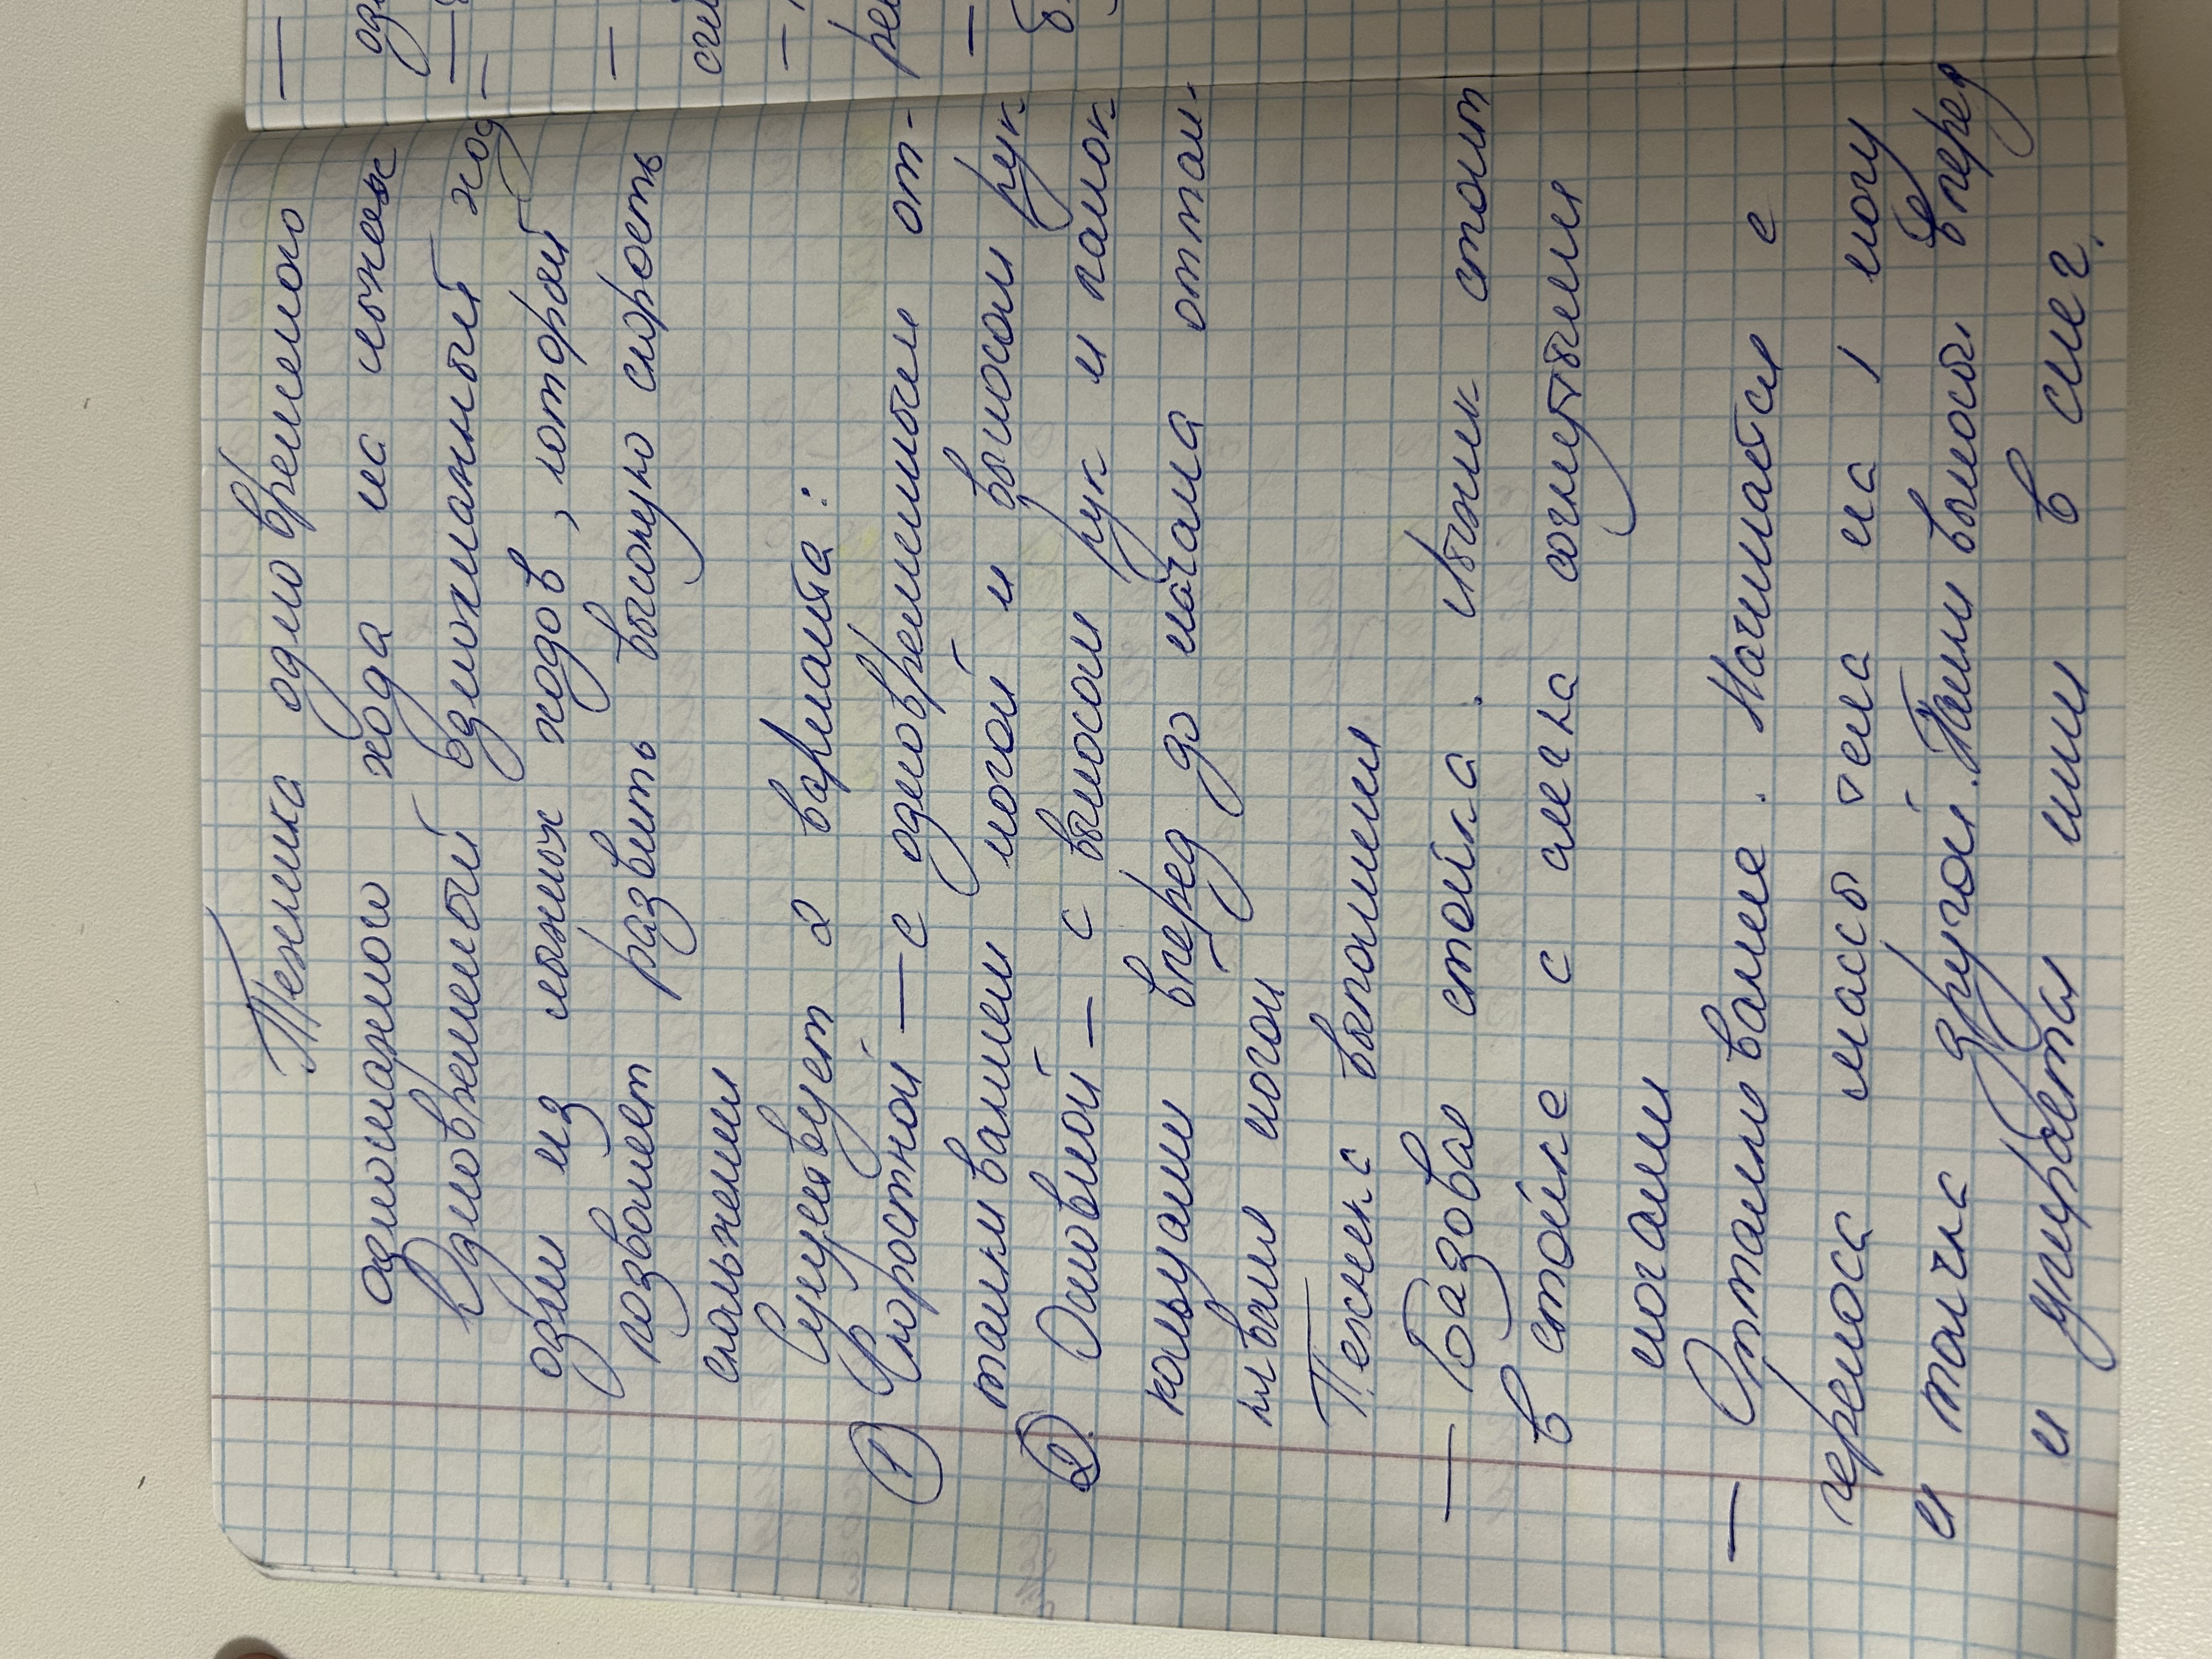 Техника одновременого
одношажного хода на лыжах
Одновременый одношажный ход
один из лыжных ходов, которой
позволяет развить высокую скорость
скольжения
Существует 2 варианта:
① Скоростной – с одновременным от-
талкиванием ногой и выносом рук
② Основной – с выносом рук и палок
кольцами вперед до начала оттал-
кивания ногой
Техника выполнения
– Базовая стойка. Лыжник стоит
в стойке с слегка согнутыми
ногами
– Отталкивание. Начинается с
переноса массы тела на 1 ногу
и толчка другой. Палки выносы вперед
и упираются ими в снег.